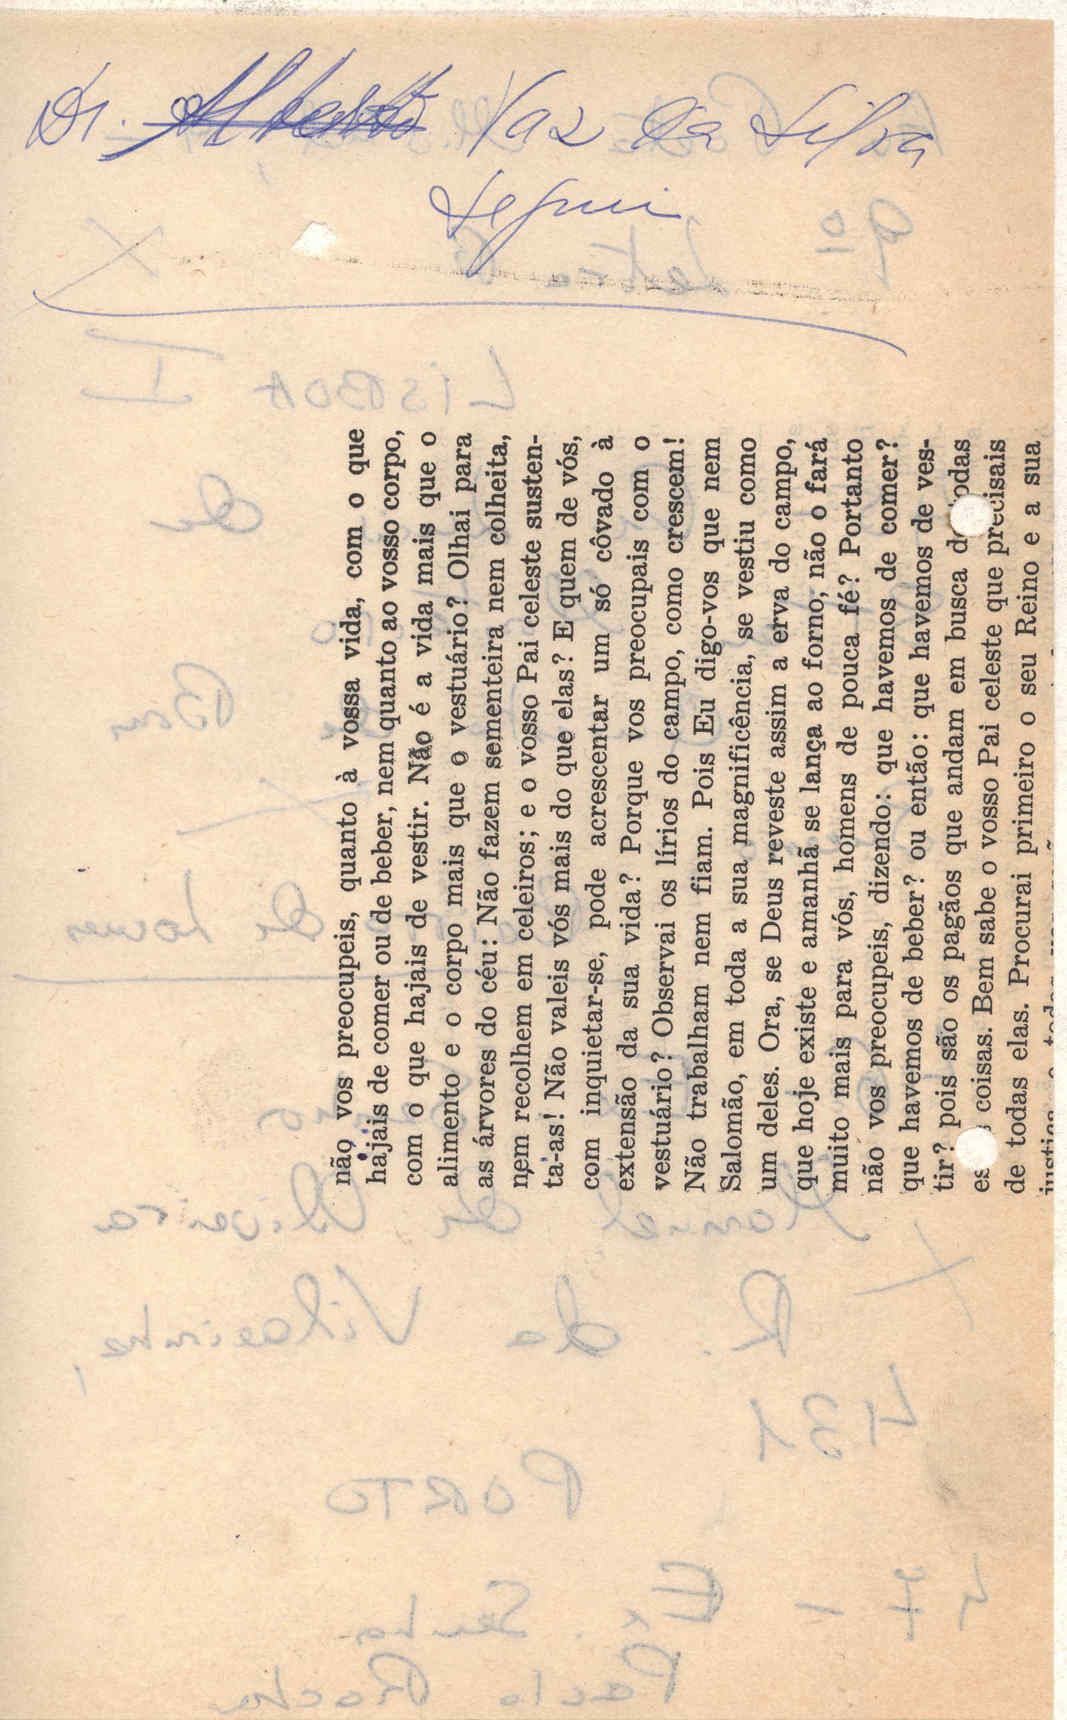 Dr. Vaz da Silva
Seguiu
não vos preocupeis, quanto à vossa vida, com o que
hajais de comer ou de beber, nem quanto ao vosso corpo,
com o que hajais de vestir. Não é a vida mais que o
alimento e o corpo mais que o vestuário? Olhai para
as árvores do céu: Não fazem sementeira nem colheita,
nem recolhem em celeiros; e o vosso Pai celeste susten-
ta-as! Não valeis vós mais do que elas? E quem de vós,
com inquietar-se, pode acrescentar um só côvado à
extensão da sua vida? Porque vos preocupais com o
vestuário? Observai os lírios do campo, como crescem!
Não trabalham nem fiam. Pois Eu digo-vos que nem
Salomão, em toda a sua magnificência, se vestiu como
um deles. Ora, se Deus reveste assim a erva do campo,
que hoje existe e amanhã se lança ao forno, não o fará
muito mais para vós, homens de pouca fé? Portanto
não vos preocupeis, dizendo: que havemos de comer?
que havemos de beber? ou então: que havemos de ves-
tir? pois são os pagãos que andam em busca de todas
coisas. Bem sabe o vosso Pai celeste que precisais
de todas elas. Procurai primeiro o seu Reino e a sua
LISBOA
Manuel de Oliveira
R. da Vilarinha,
431
PORTO
47 - Ex. Senhor
Paulo Rocha